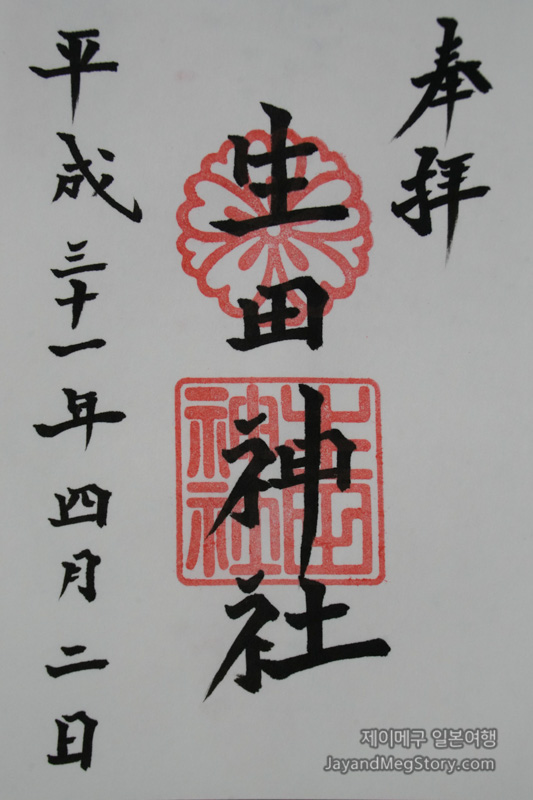 奉拝
生田神社
生田神社
平成三十一年四月二日
제이메구 일본여행
JayandMegStory.com